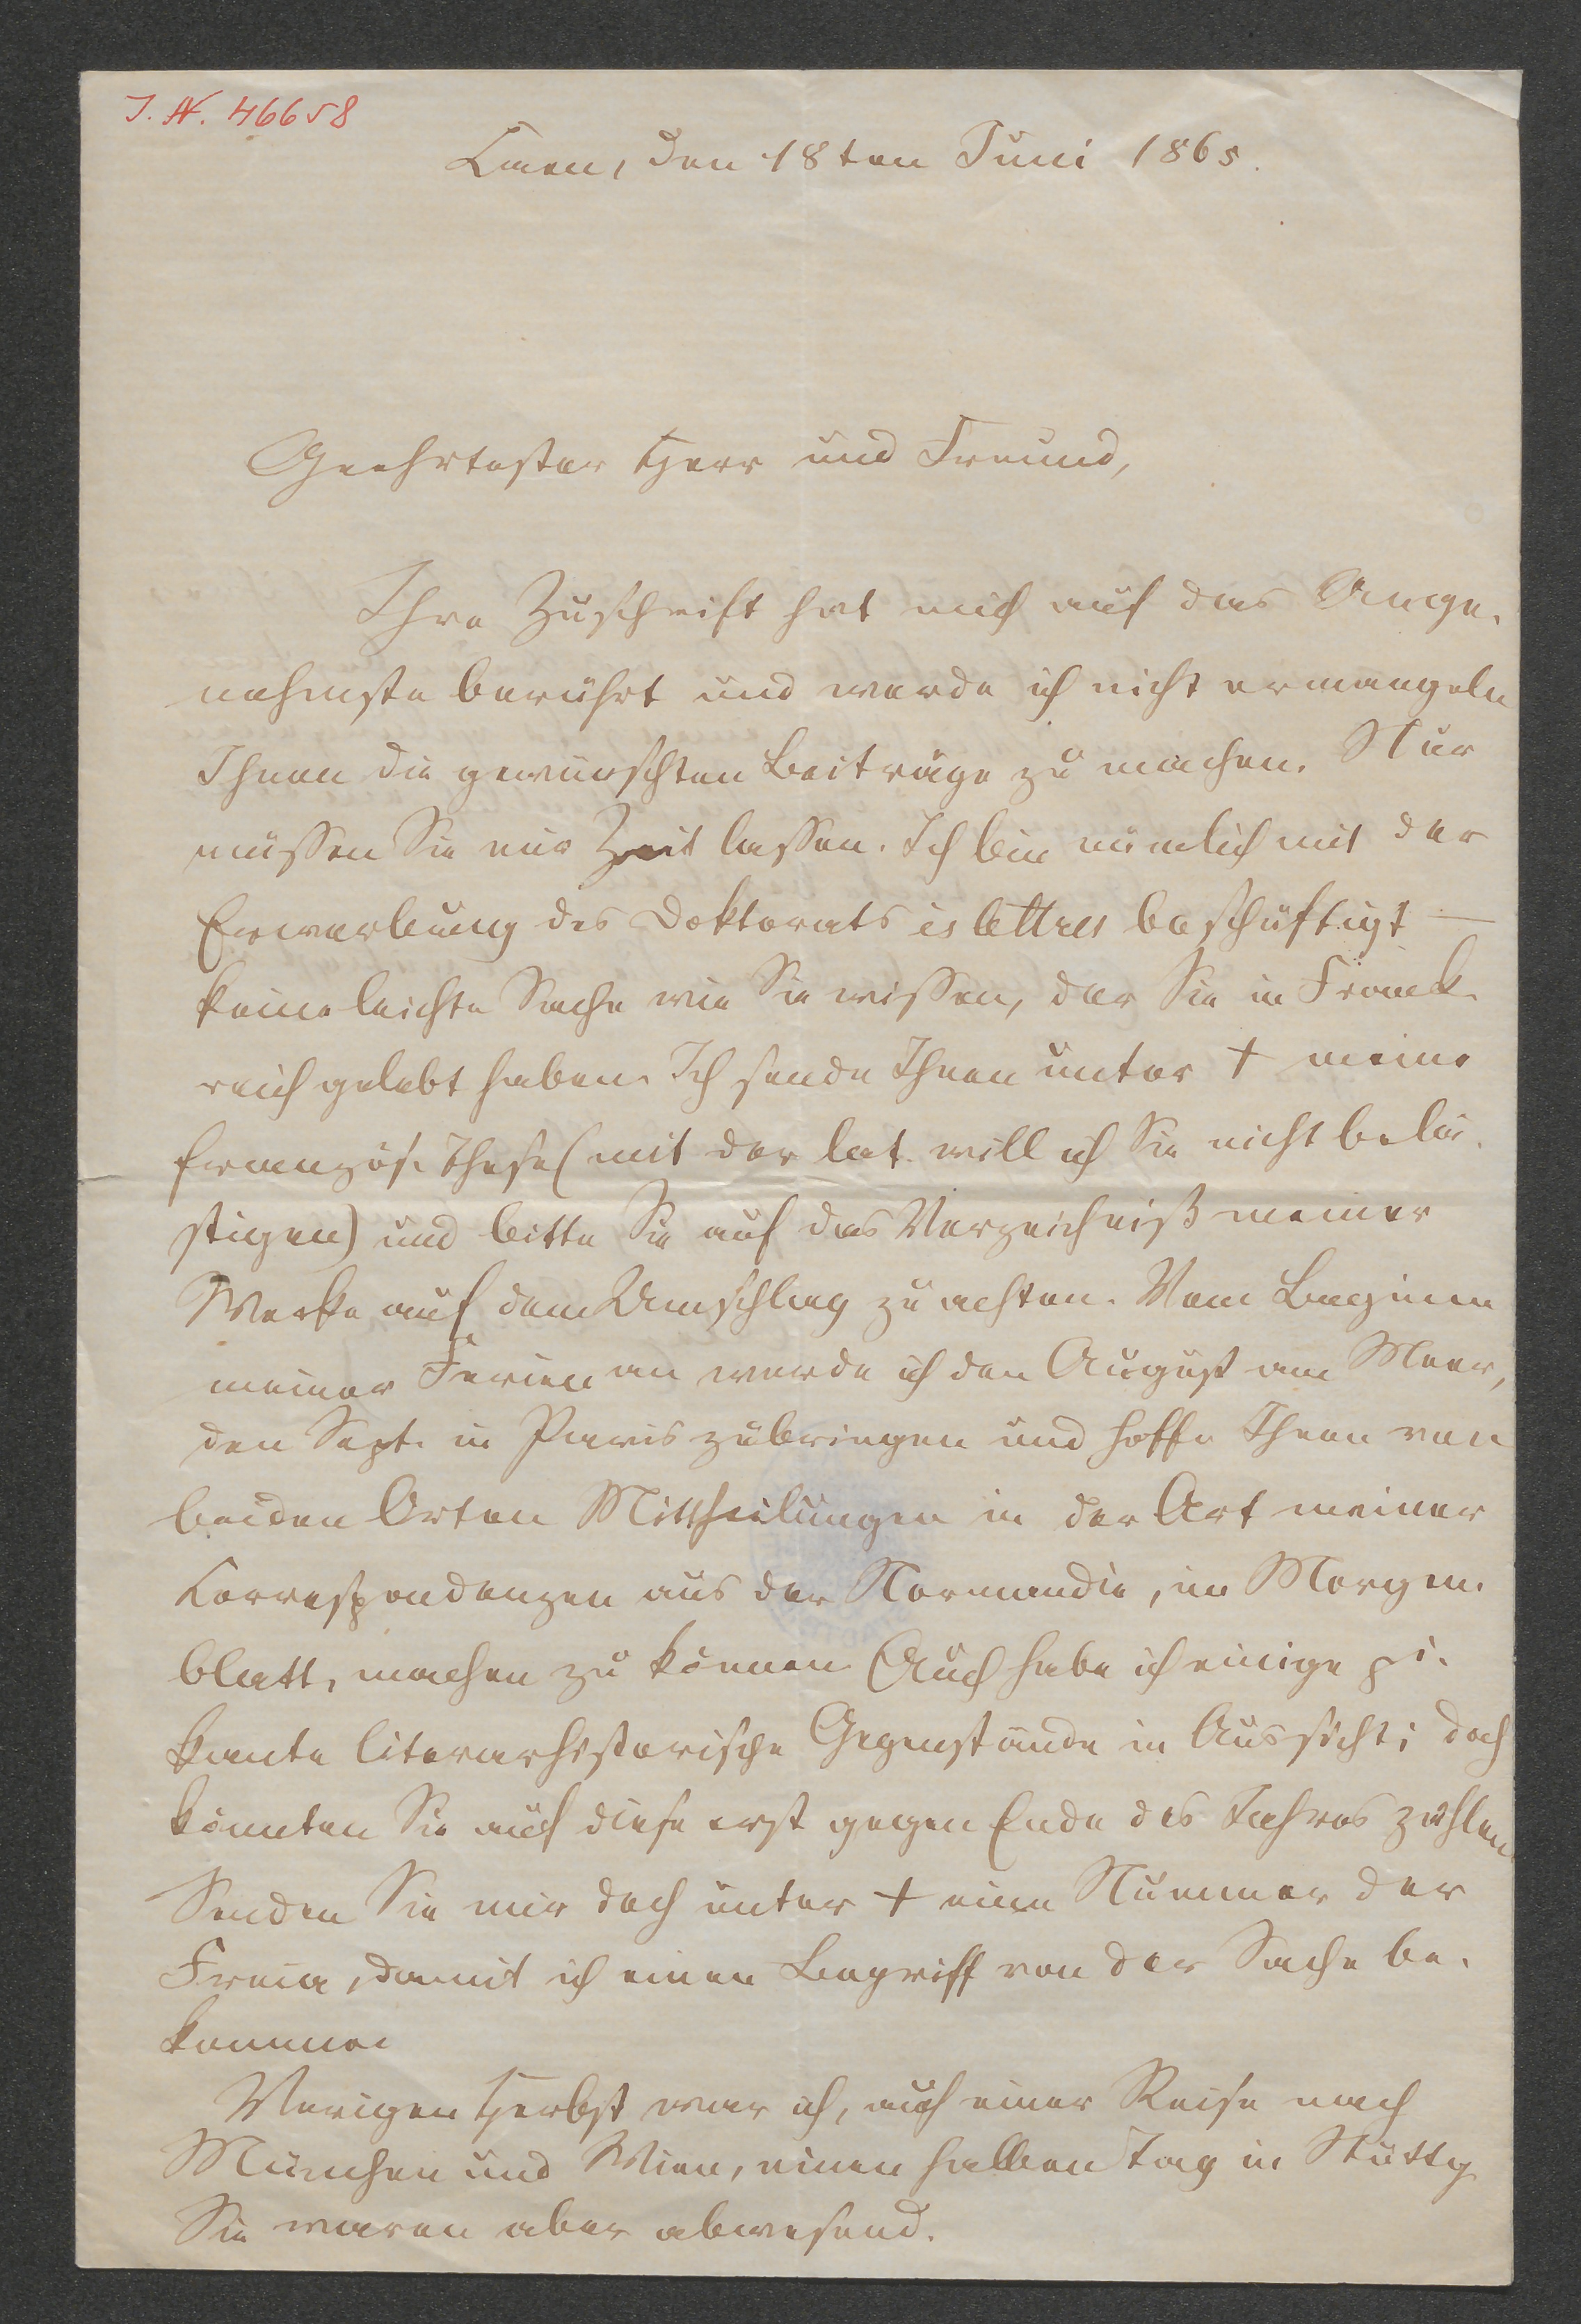 J. N. 46658
Caen, den 18ten Juni 1865.
Geehrtester Herr und Freund,
Ihre Zuschrift hat mich auf das Ange-
nehmste berührt und werde ich nicht ermangeln
Ihnen die gewünschten Beiträge zu machen. Nur
müssen Sie mir Zeit lassen. Ich bin nämlich mit der
Erwerbung des Doktorats ès lettres beschäftigt —
keine leichte Sache wie Sie wissen, der Sie in Frank-
reich gelebt haben. Ich sende Ihnen unter + meine
französ. These (mit der lat. will ich Sie nicht belä-
stigen) und bitte Sie auf das Verzeichniß meiner
Werke auf dem Umschlag zu achten. Vom Beginn
meiner Ferien an werde ich den August am Meer,
den Sept. in Paris zubringen und hoffe Ihnen von
beiden Orten Mittheilungen in der Art meiner
Correspondenzen aus der Normandie, im Morgen-
blatt, machen zu können. Auch habe ich einige pi-
kante literarhistorische Gegenstände in Aussicht; doch
könnten Sie auf diese erst gegen Ende des Jahres zählen.
Senden Sie mir doch unter + eine Nummer der
Freia, damit ich einen Begriff von der Sache be-
komme.
Vorigen Herbst war ich, auf einer Reise nach
München und Wien, einen halben Tag in Stuttg.
Sie waren aber abwesend.